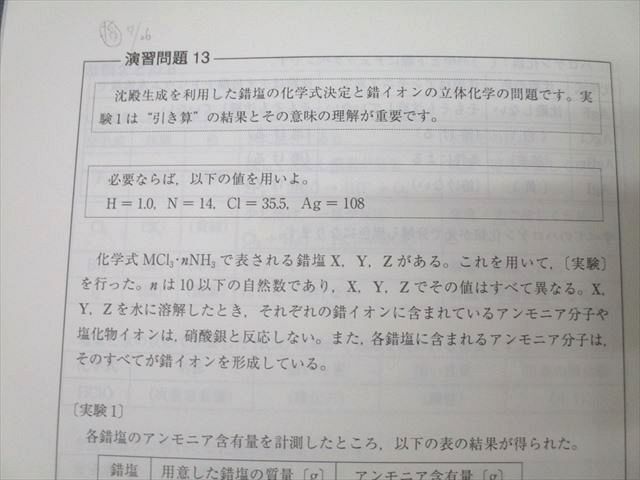 7/26
演習問題 13
沈殿生成を利用した錯塩の化学式決定と錯イオンの立体化学の問題です。実
験1は“引き算”の結果とその意味の理解が重要です。
必要ならば，以下の値を用いよ。
H＝1.0, N＝14, Cl＝35.5, Ag＝108
化学式 MCl₃・nNH₃ で表される錯塩 X, Y, Z がある。これを用いて,〔実験〕
を行った。n は 10 以下の自然数であり, X, Y, Z でその値はすべて異なる。X,
Y, Z を水に溶解したとき, それぞれの錯イオンに含まれているアンモニア分子や
塩化物イオンは, 硝酸銀と反応しない。また, 各錯塩に含まれるアンモニア分子は,
そのすべてが錯イオンを形成している。
〔実験1〕
各錯塩のアンモニア含有量を計測したところ, 以下の表の結果が得られた。
錯塩 用意した錯塩の質量〔g〕 アンモニア含有量〔g〕